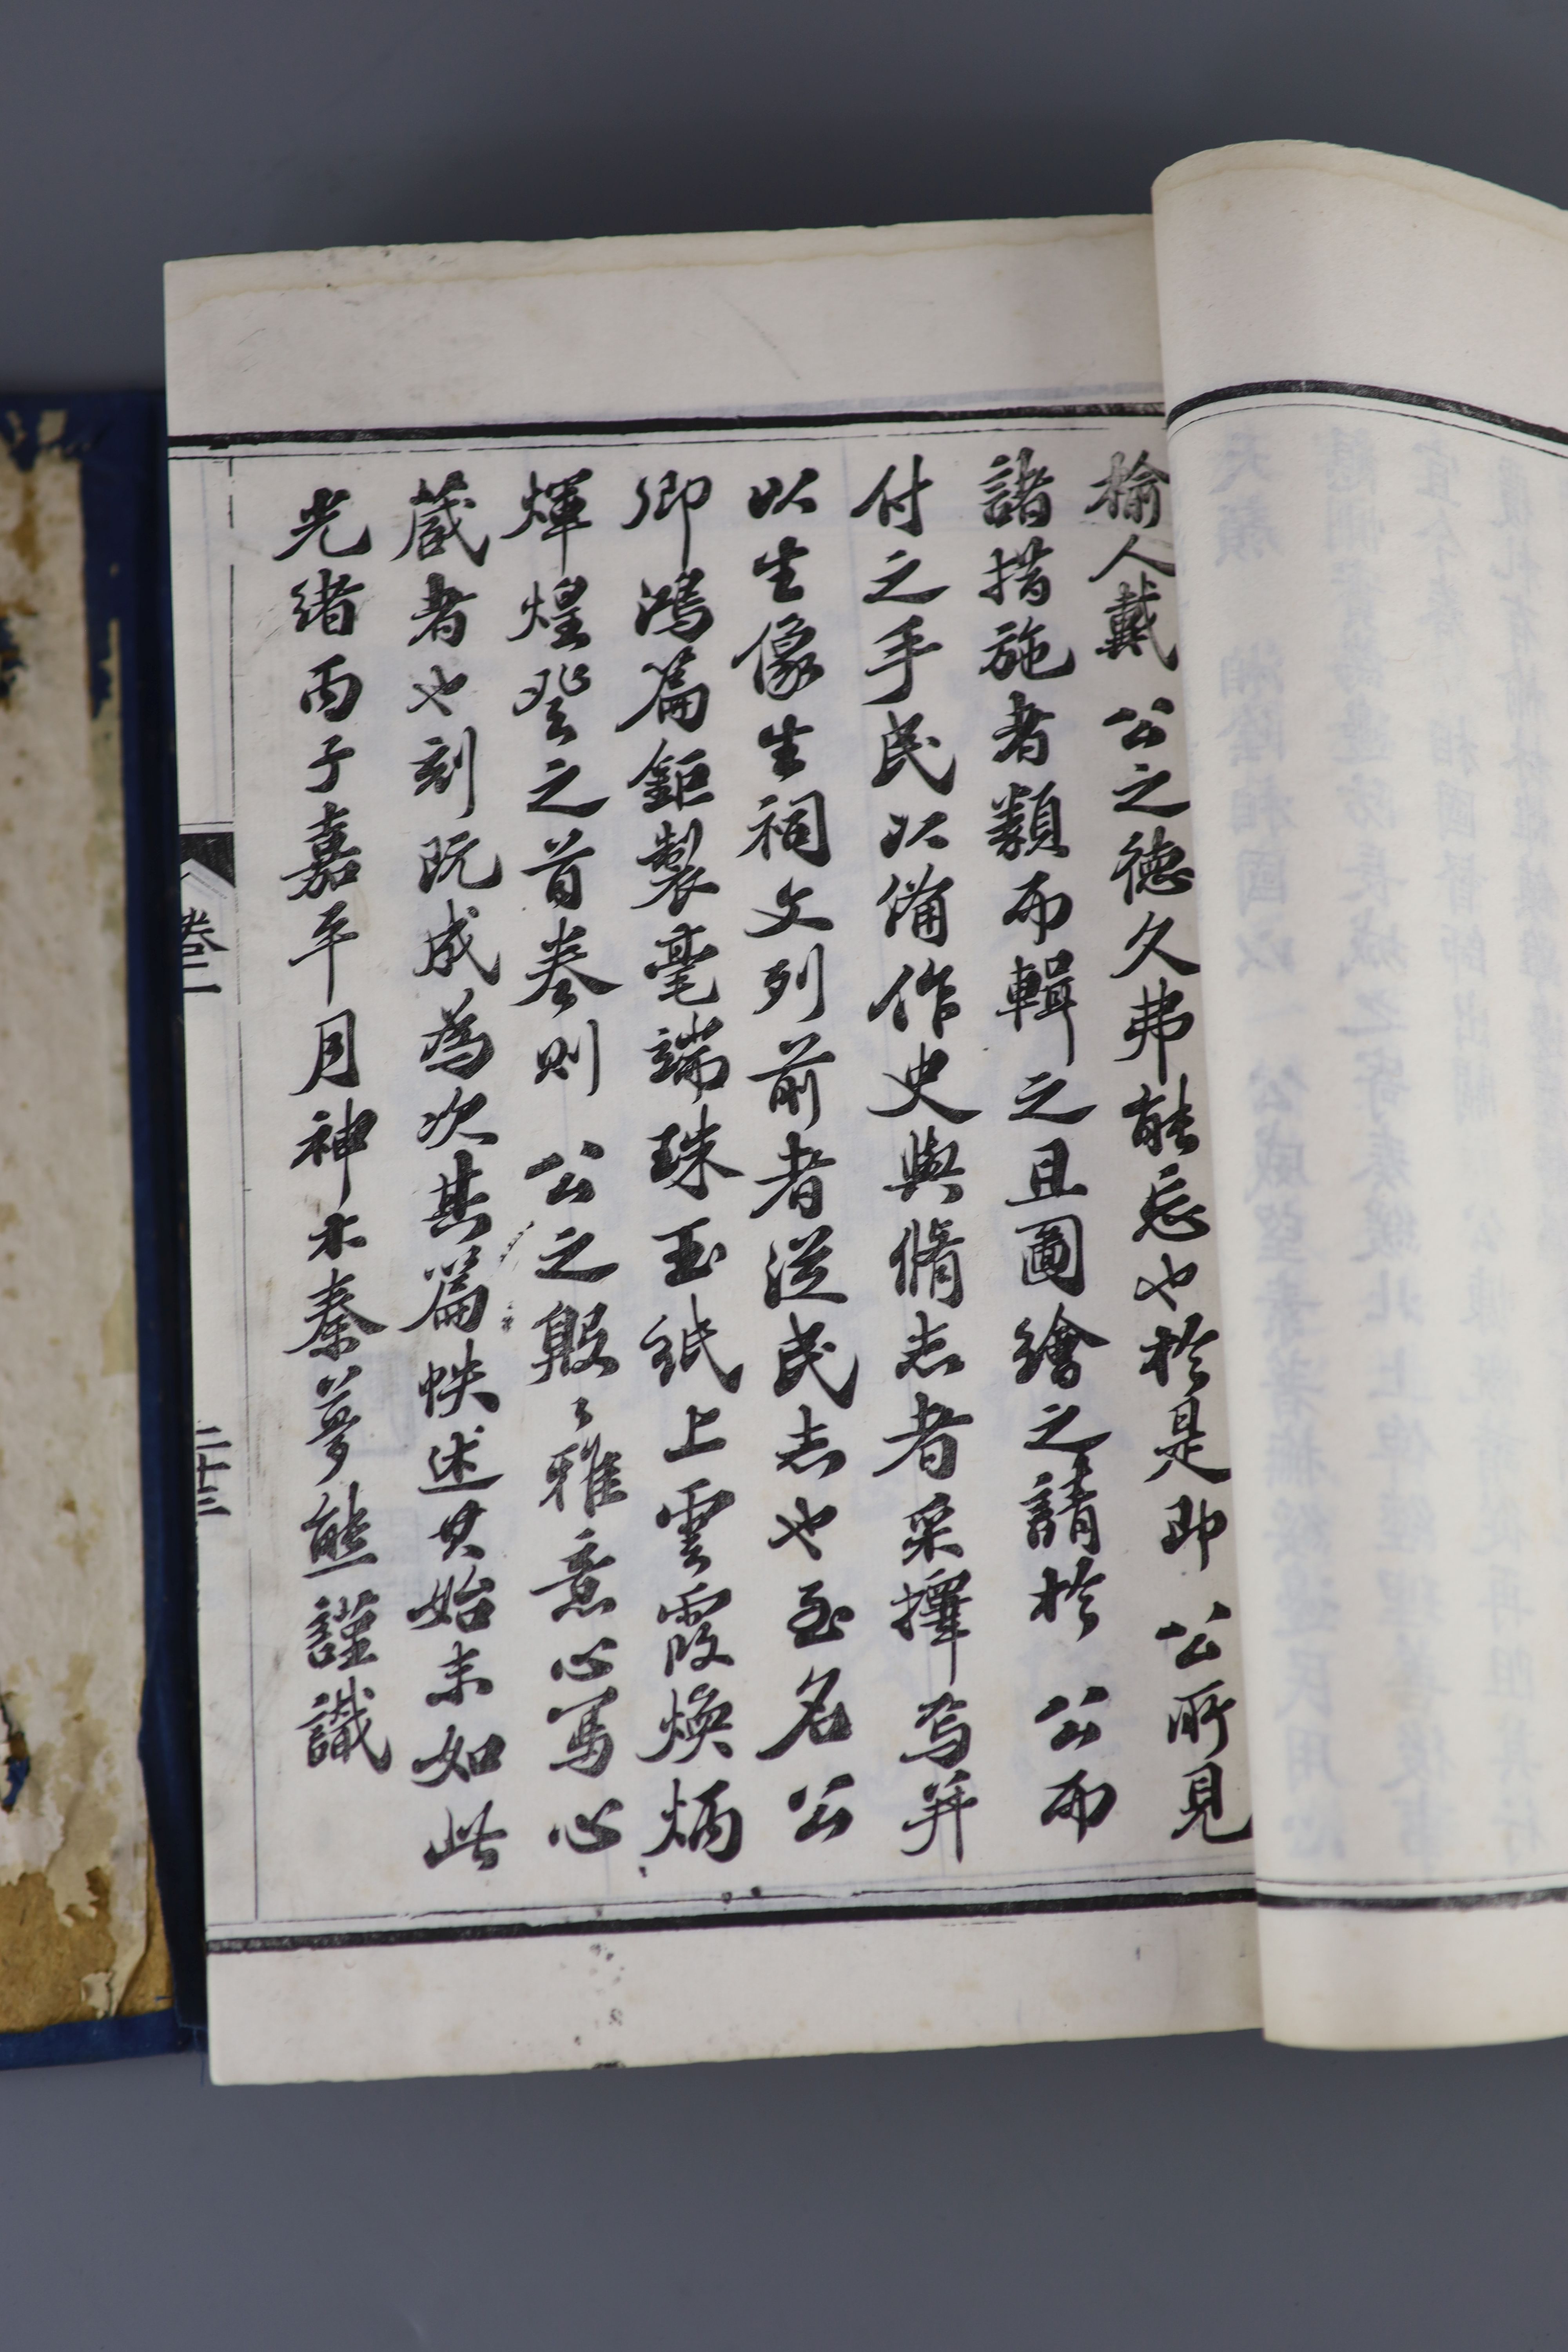 榆人戴 公之德久弗能忘也於是即 公所見
諸措施者類而輯之且圖繪之請於 公而
付之手民以備作史與脩志者采擇焉并
以生像生祠文列前者從民志也至名公
卿鴻篇鉅製毫端珠玉紙上雲霞煥炳
輝煌登之首卷則 公之殷〻雅意心寫心
藏者也刻既成為次其篇帙述其始末如此
光緒丙子嘉平月神木秦夢熊謹識
卷二
二十三